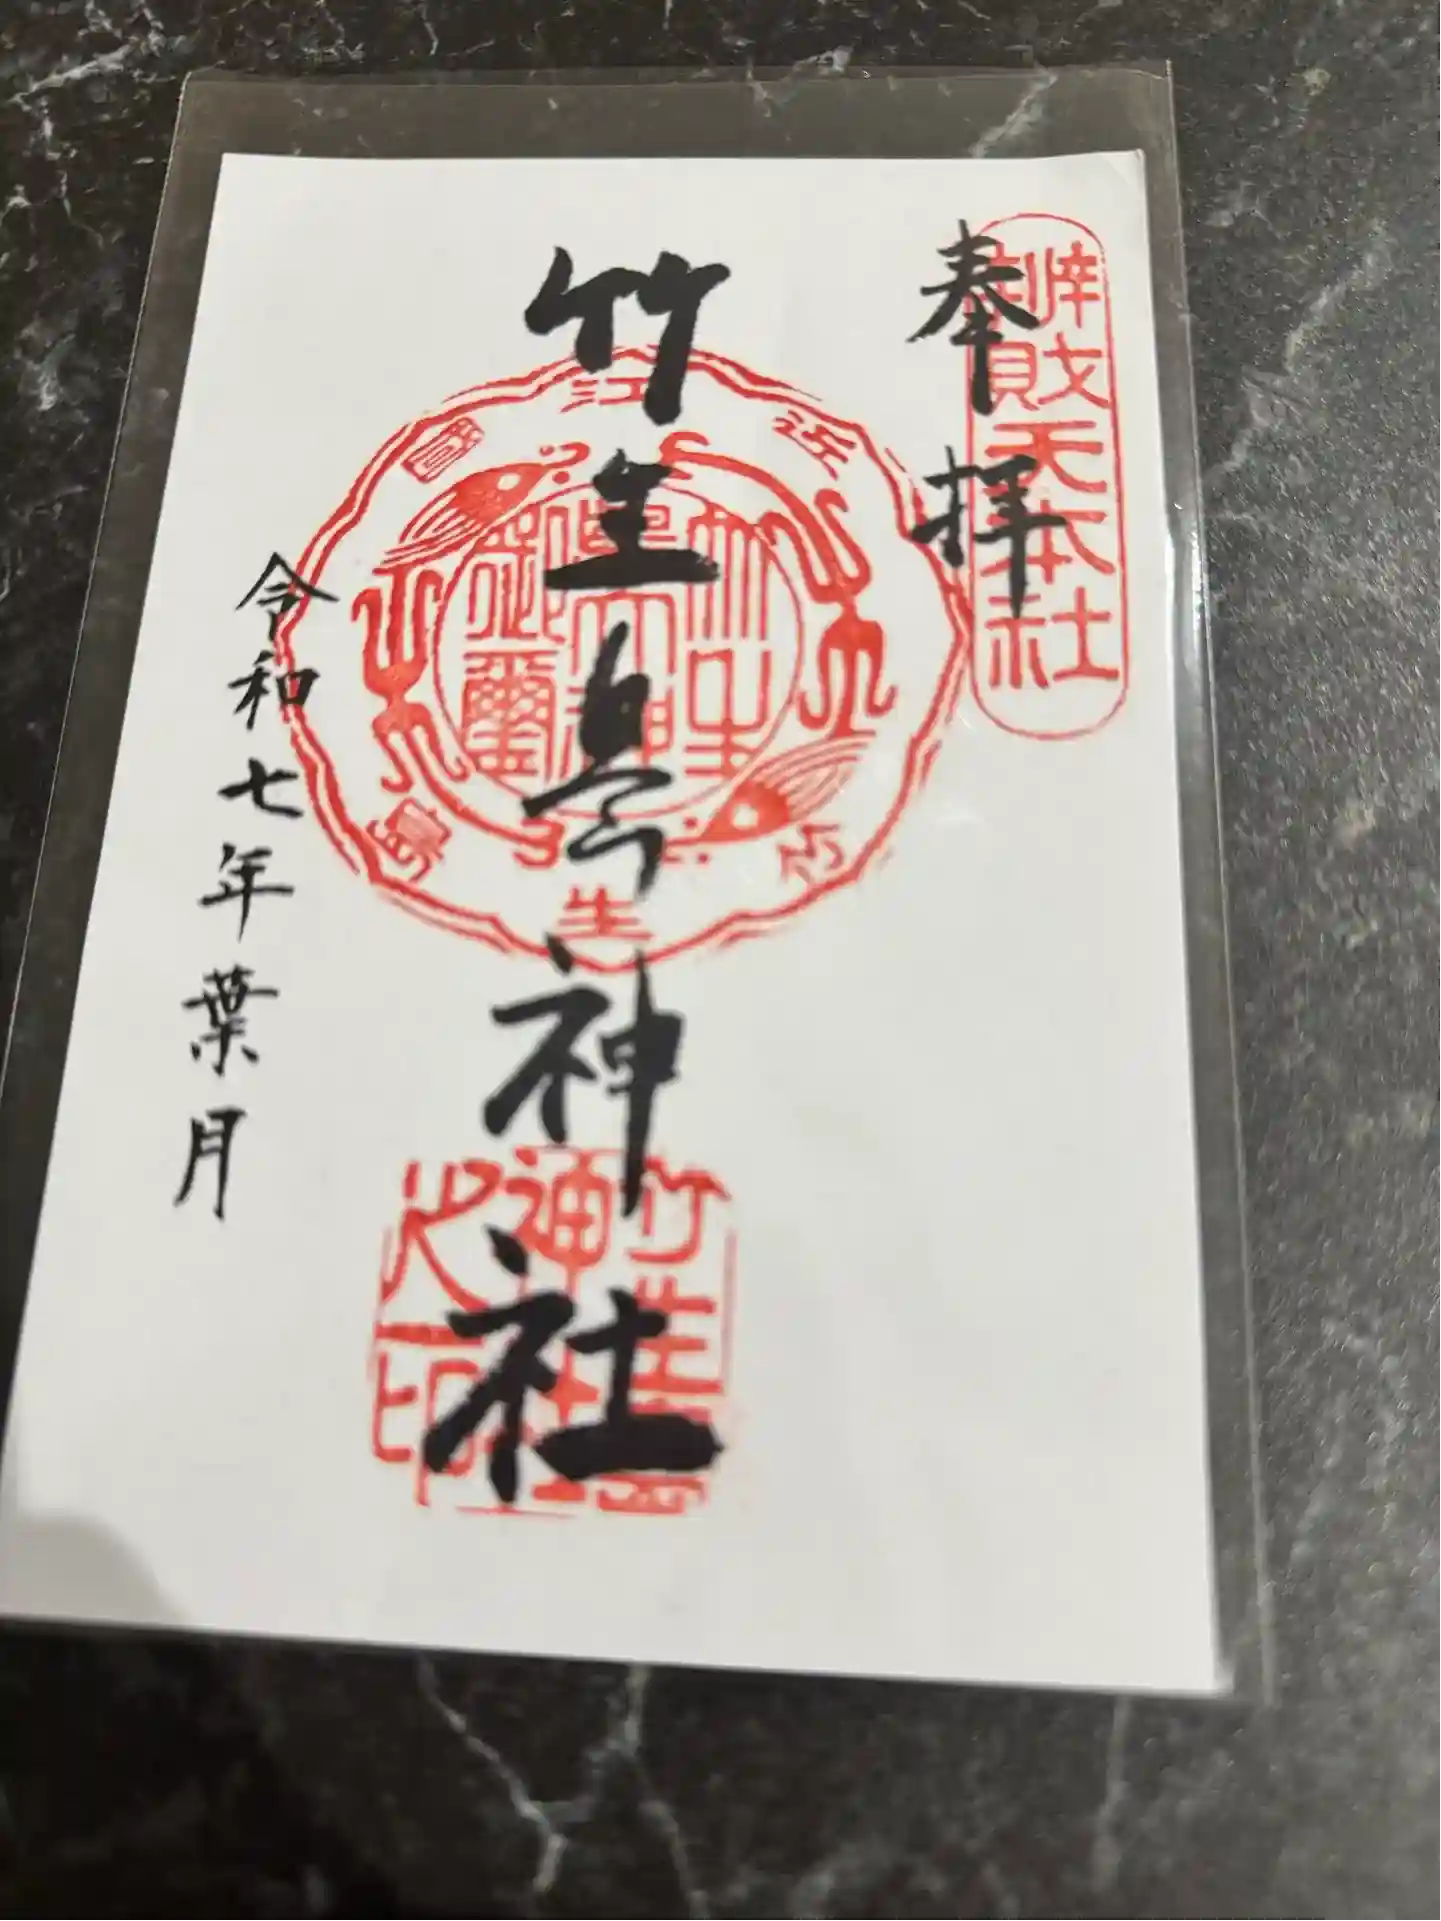 奉拝
辨財天本社
竹生島神社
近江國
竹生島
竹生島神社之印
令和七年葉月